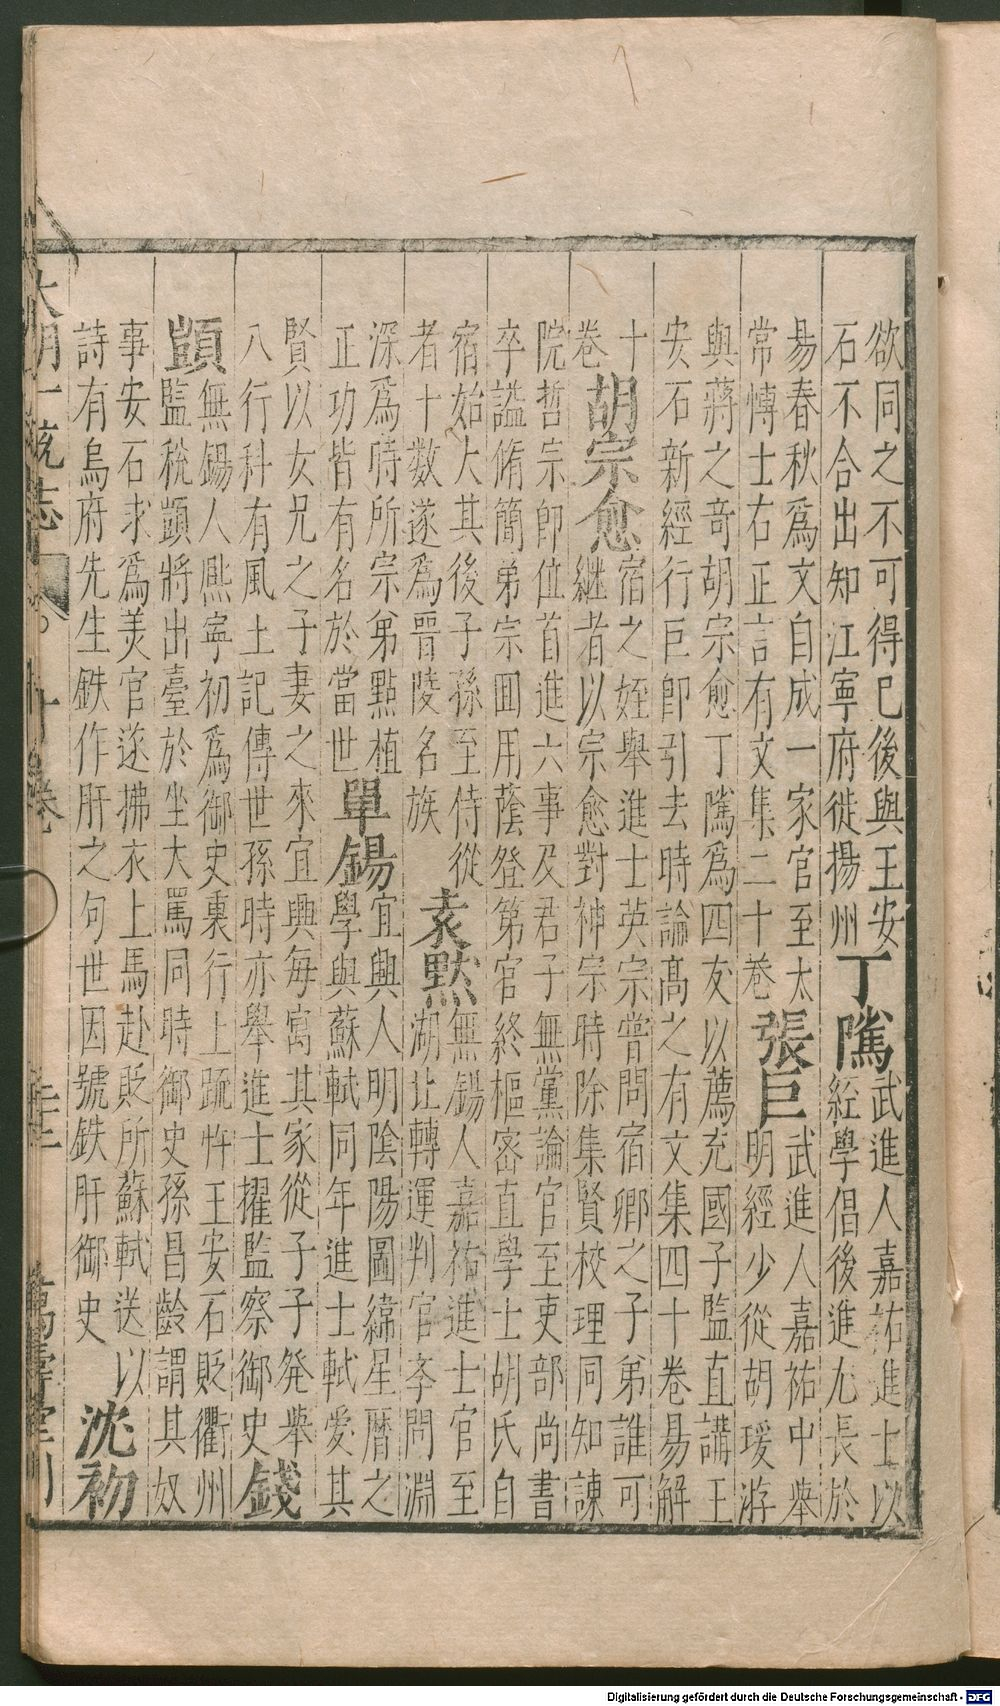 欲同之不可得巳後與王安
石不合出知江寧府徙揚州
丁隲
武進人嘉祐進士以
經學倡後進尢長於
易春秋爲文自成一家官至太
常博士右正言有文集二十卷
張巨
武進人嘉祐中舉
明經少從胡瑗游
與蔣之竒胡宗愈丁隲爲四友以薦充國子監直講王
安石新經行巨卽引去時論髙之有文集四十卷易解
十
卷
胡宗愈
宿之姪舉進士英宗嘗問宿卿之子弟誰可
繼者以宗愈對神宗時除集賢校理同知諫
院哲宗卽位首進六事及君子無黨論官至吏部尚書
卒謚脩簡弟宗囬用蔭登第官終樞密直學士胡氏自
宿始大其後子孫至侍從
者十數遂爲晋陵名族
袁黙
無錫人嘉祐進士官至
湖北轉運判官李問淵
深爲時所宗弟點植
正功皆有名於當世
單錫
宜興人明陰陽圖緯星暦之
學與蘇軾同年進士軾愛其
賢以女兄之子妻之來宜興毎寓其家從子子發舉
八行科有風土記傳世孫時亦舉進士擢監察御史
錢
顗
無錫人熈寧初爲御史裏行上䟽忤王安石貶衢州
監稅顗將出臺於坐大罵同時御史孫昌齡謂其奴
事安石求爲美官遂拂衣上馬赴貶所蘇軾送以
詩有烏府先生鉄作肝之句世因號鉄肝御史
沈初
大明一統志
十卷
萬壽堂刊
Digitalisierung gefördert durch die Deutsche Forschungsgemeinschaft - DFG